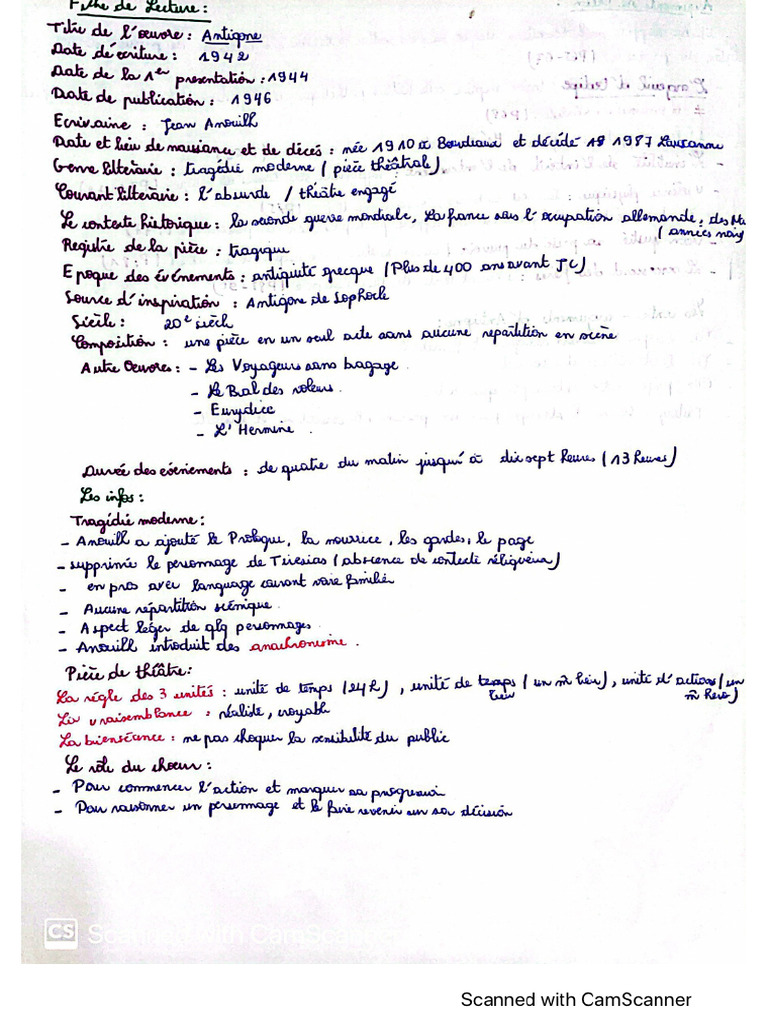 Fiche de Lecture :
Titre de l'œuvre : Antigone
Date d'écriture : 1942
Date de la 1ère presentation : 1944
Date de publication : 1946
Ecrivaine : Jean Anouilh
Date et lieu de naissance et de décès : née 1910 à Bordeaux et décédé 1987 Lausanne
Genre littéraire : tragédie moderne (pièce théâtrale)
Courant littéraire : l'absurde / théâtre engagé
Le contexte historique : la seconde guerre mondiale, la france sous l'occupation allemande, des
(années noir
Registre de la pièce : tragique
Epoque des événements : antiquité grecque (Plus de 400 ans avant JC)
Source d'inspiration : Antigone de Sophocle
Siècle : 20e siècle
Composition : une pièce en un seul acte sans aucune repartition en scène
Autre Oeuvres : - Les Voyageurs sans bagage
- Le Bal des voleurs.
- Eurydice
- L'Hermine.
Durée des événements : de quatre du matin jusqu'à dix sept heures (13 heures)
Les infos :
Tragédie moderne :
- Anouilh a ajouté le Prologue, la nourrice, les gardes, le page
- supprimé le personnage de Tiresias (abscence de contexte réligieux)
- en pros avec language courant voire familié
- Aucune répartition scénique.
- Aspect léger de qlq personnages
- Anouilh introduit des anachronisme.
Pièce de théâtre :
La régle des 3 unités : unité de temps (24h), unité de temps (un m̂ lieu), unité d'actions (un
lieu m̂ Hero)
La vraisemblance : réaliste, croyable
La bienséance : ne pas choquer la sensibilité du public
Le rôle du choeur :
- Pour commencer l'action et marquer sa
- Pour raisonner un personnage et le faire revenir sur sa décision
CS Scanned with CamScanner
Scanned with CamScanner